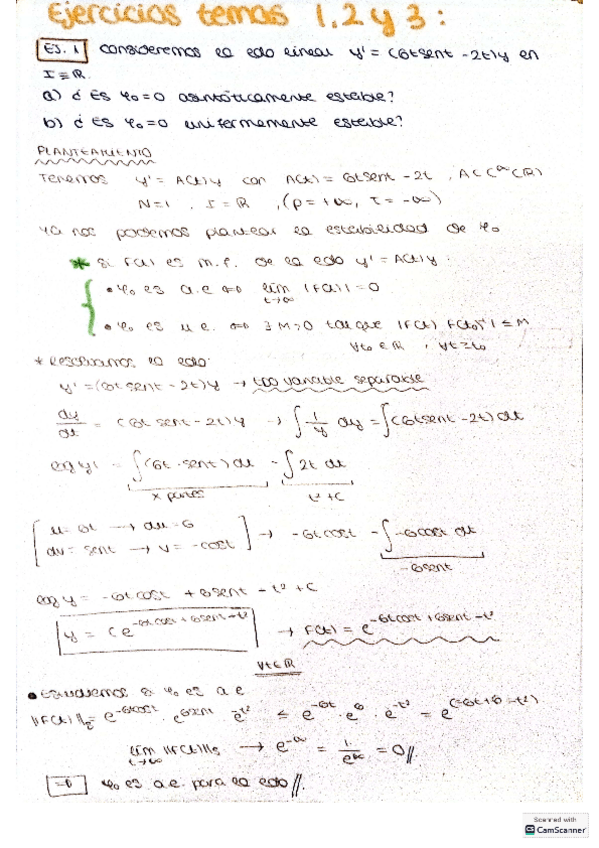 Ejercicios temas 1, 2 y 3:
EJ. 1 Consideremos la edo lineal y' = (6t sent - 2t)y en
I ≡ ℝ.
a) ¿Es φ₀ = 0 asintóticamente estable?
b) ¿Es φ₀ = 0 uniformemente estable?
PLANTEAMIENTO
Tenemos y' = A(t)y con A(t) = 6t sent - 2t , A ∈ C^∞(ℝ)
N=1 , I = ℝ , (ρ = +∞, τ = -∞)
Ya nos podemos plantear la estabilidad de φ₀
* Si F(t) es m.f. de la edo y' = A(t)y :
• φ₀ es a.e ⇔ lim t→∞ |F(t)| = 0
• φ₀ es u.e. ⇔ ∃ M>0 tal que |F(t) F(t₀)⁻¹| ≤ M
∀t₀ ∈ ℝ , ∀t ≥ t₀
* Resolvamos la edo:
y' = (6t sent - 2t)y → edo variable separable
dy/dt = (6t sent - 2t)y → ∫ 1/y dy = ∫ (6t sent - 2t) dt
log|y| = ∫ (6t · sent) dt - ∫ 2t dt
x partes t² + C
[ u = 6t → du = 6
dv = sent → v = -cost ] → -6t cost - ∫ -6cost dt
-6sent
log y = -6t cost + 6sent - t² + C
y = C e^(-6t cost + 6sent - t²) → F(t) = e^(-6t cost + 6sent - t²)
∀t ∈ ℝ
• Estudiemos si φ₀ es a.e
||F(t)||₂ = e^(-6tcost) · e^(6sent) · e^(-t²) ≤ e^(-6t) · e^6 · e^(-t²) = e^(-6t + 6 - t²)
lim t→∞ ||F(t)||₂ → e^(-∞) = 1/e^∞ = 0 //
⇒ φ₀ es a.e. para la edo //
Scanned with
CS CamScanner